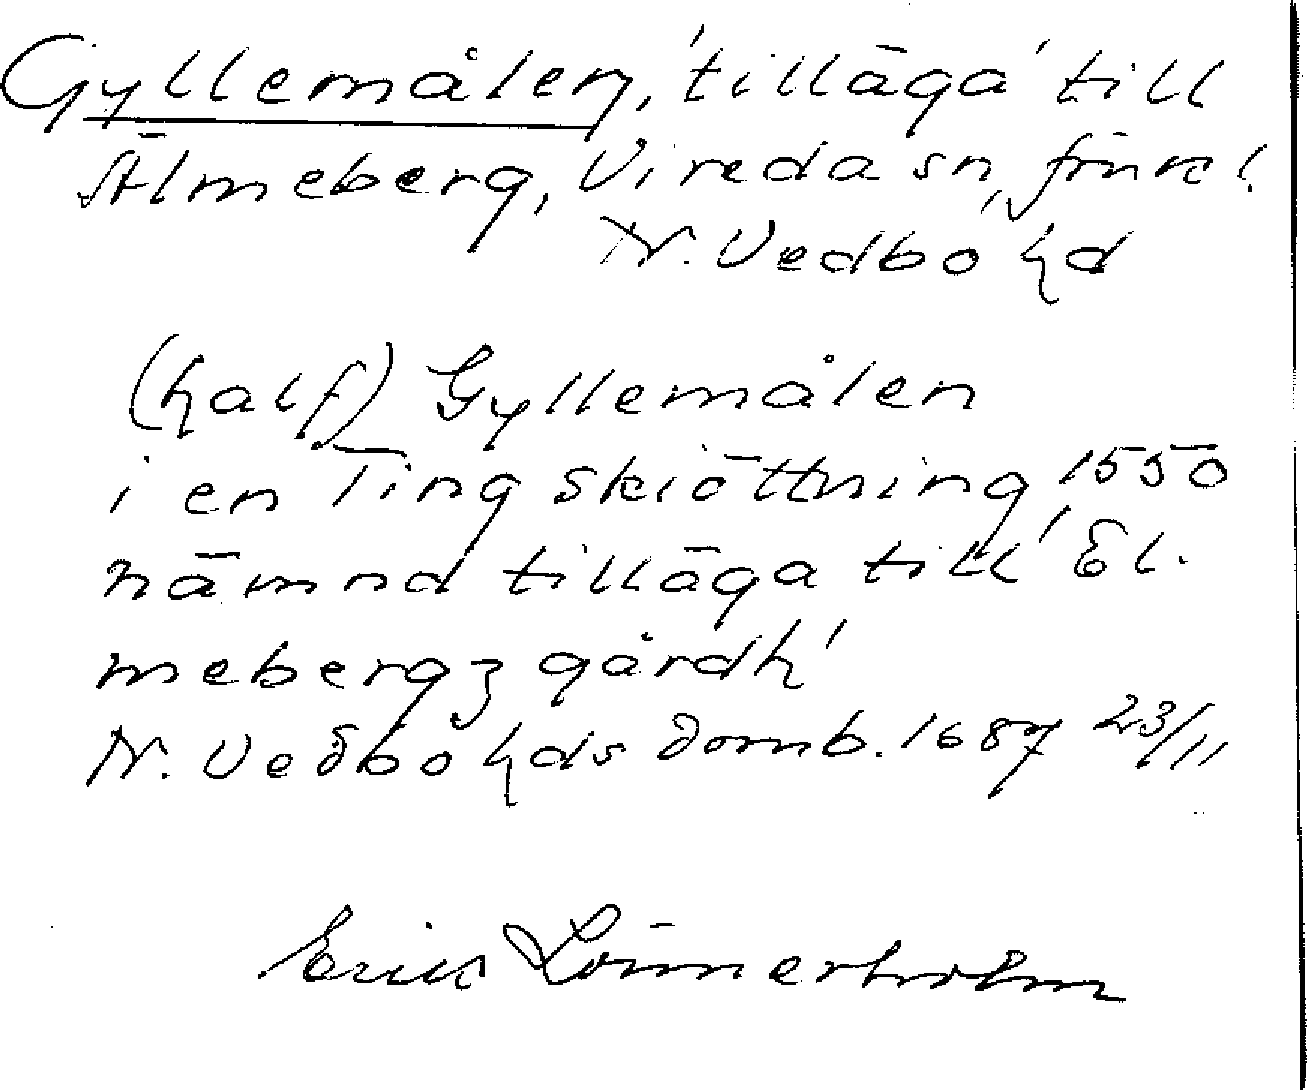 Gyllemålen, 'tilläga' till
Älmeberg, Vireda sn,
N. Vedbo hd
(half) Gyllemålen
i en Ting skiöttning 1550
nämnd tillāga till' El.
mebergz gårdh'
N. Vedbo hds domb. 1687 23/11
Erik Lönnerholm